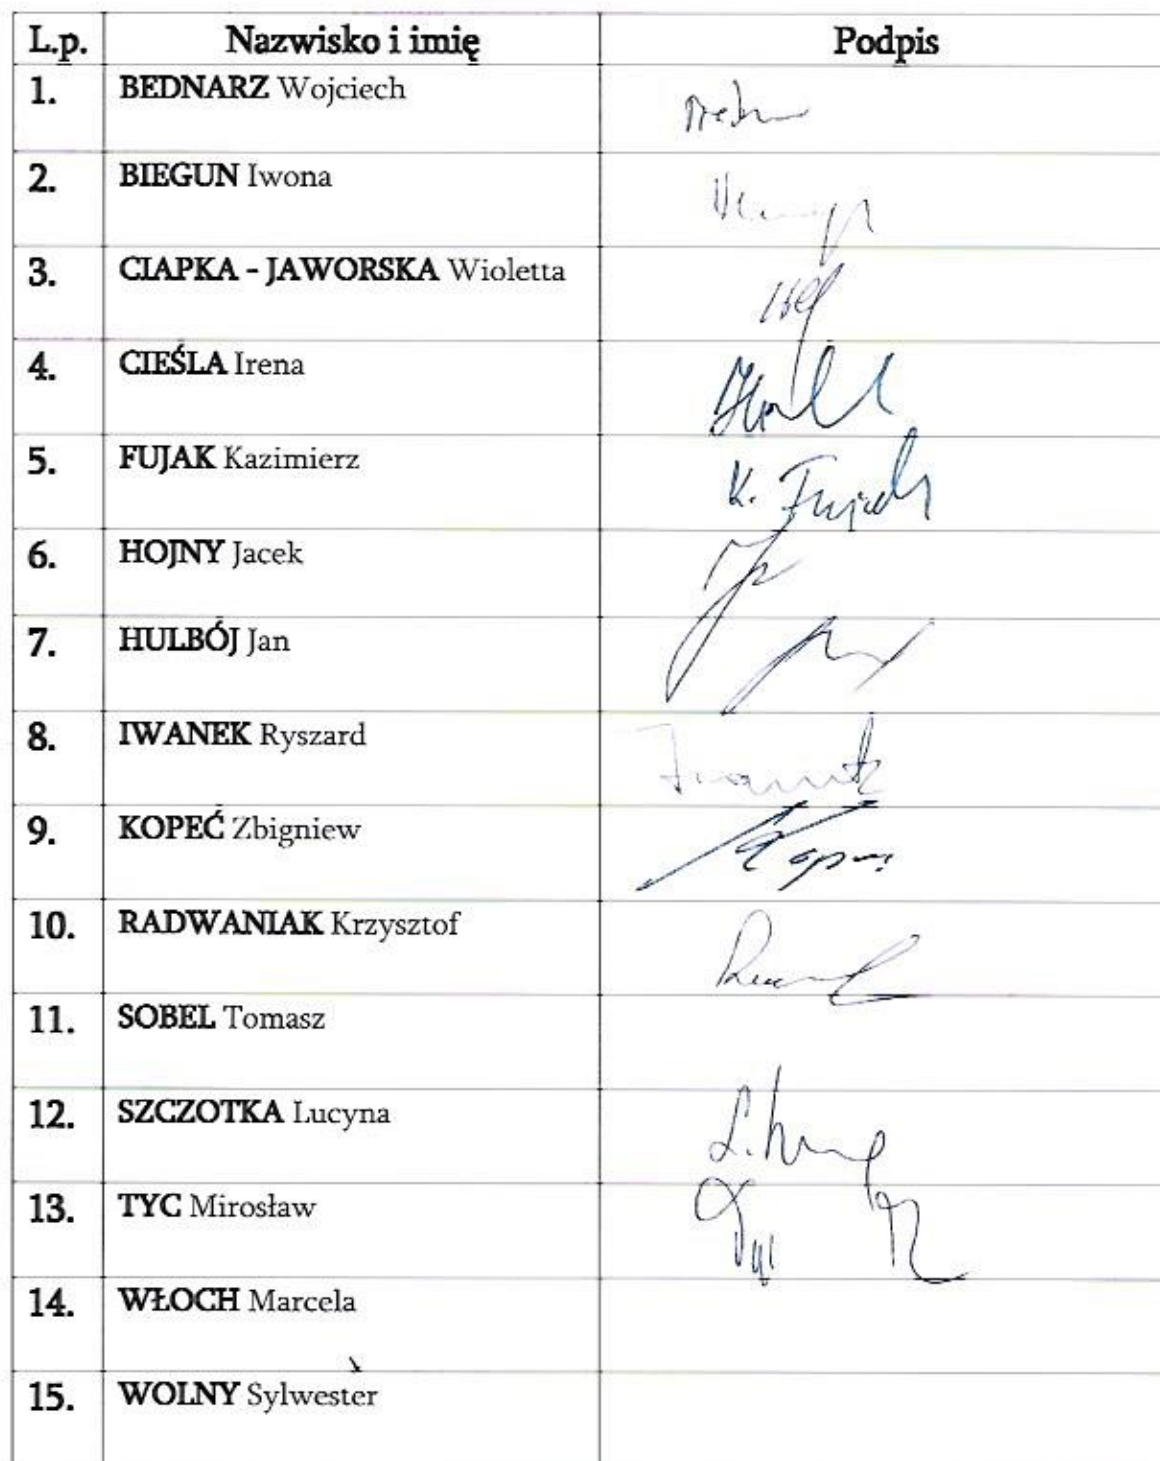 L.p. Nazwisko i imię Podpis
1. BEDNARZ Wojciech
2. BIEGUN Iwona
3. CIAPKA - JAWORSKA Wioletta
4. CIEŚLA Irena
5. FUJAK Kazimierz K. Fujak
6. HOJNY Jacek
7. HULBÓJ Jan
8. IWANEK Ryszard
9. KOPEĆ Zbigniew
10. RADWANIAK Krzysztof
11. SOBEL Tomasz
12. SZCZOTKA Lucyna
13. TYC Mirosław
14. WŁOCH Marcela
15. WOLNY Sylwester